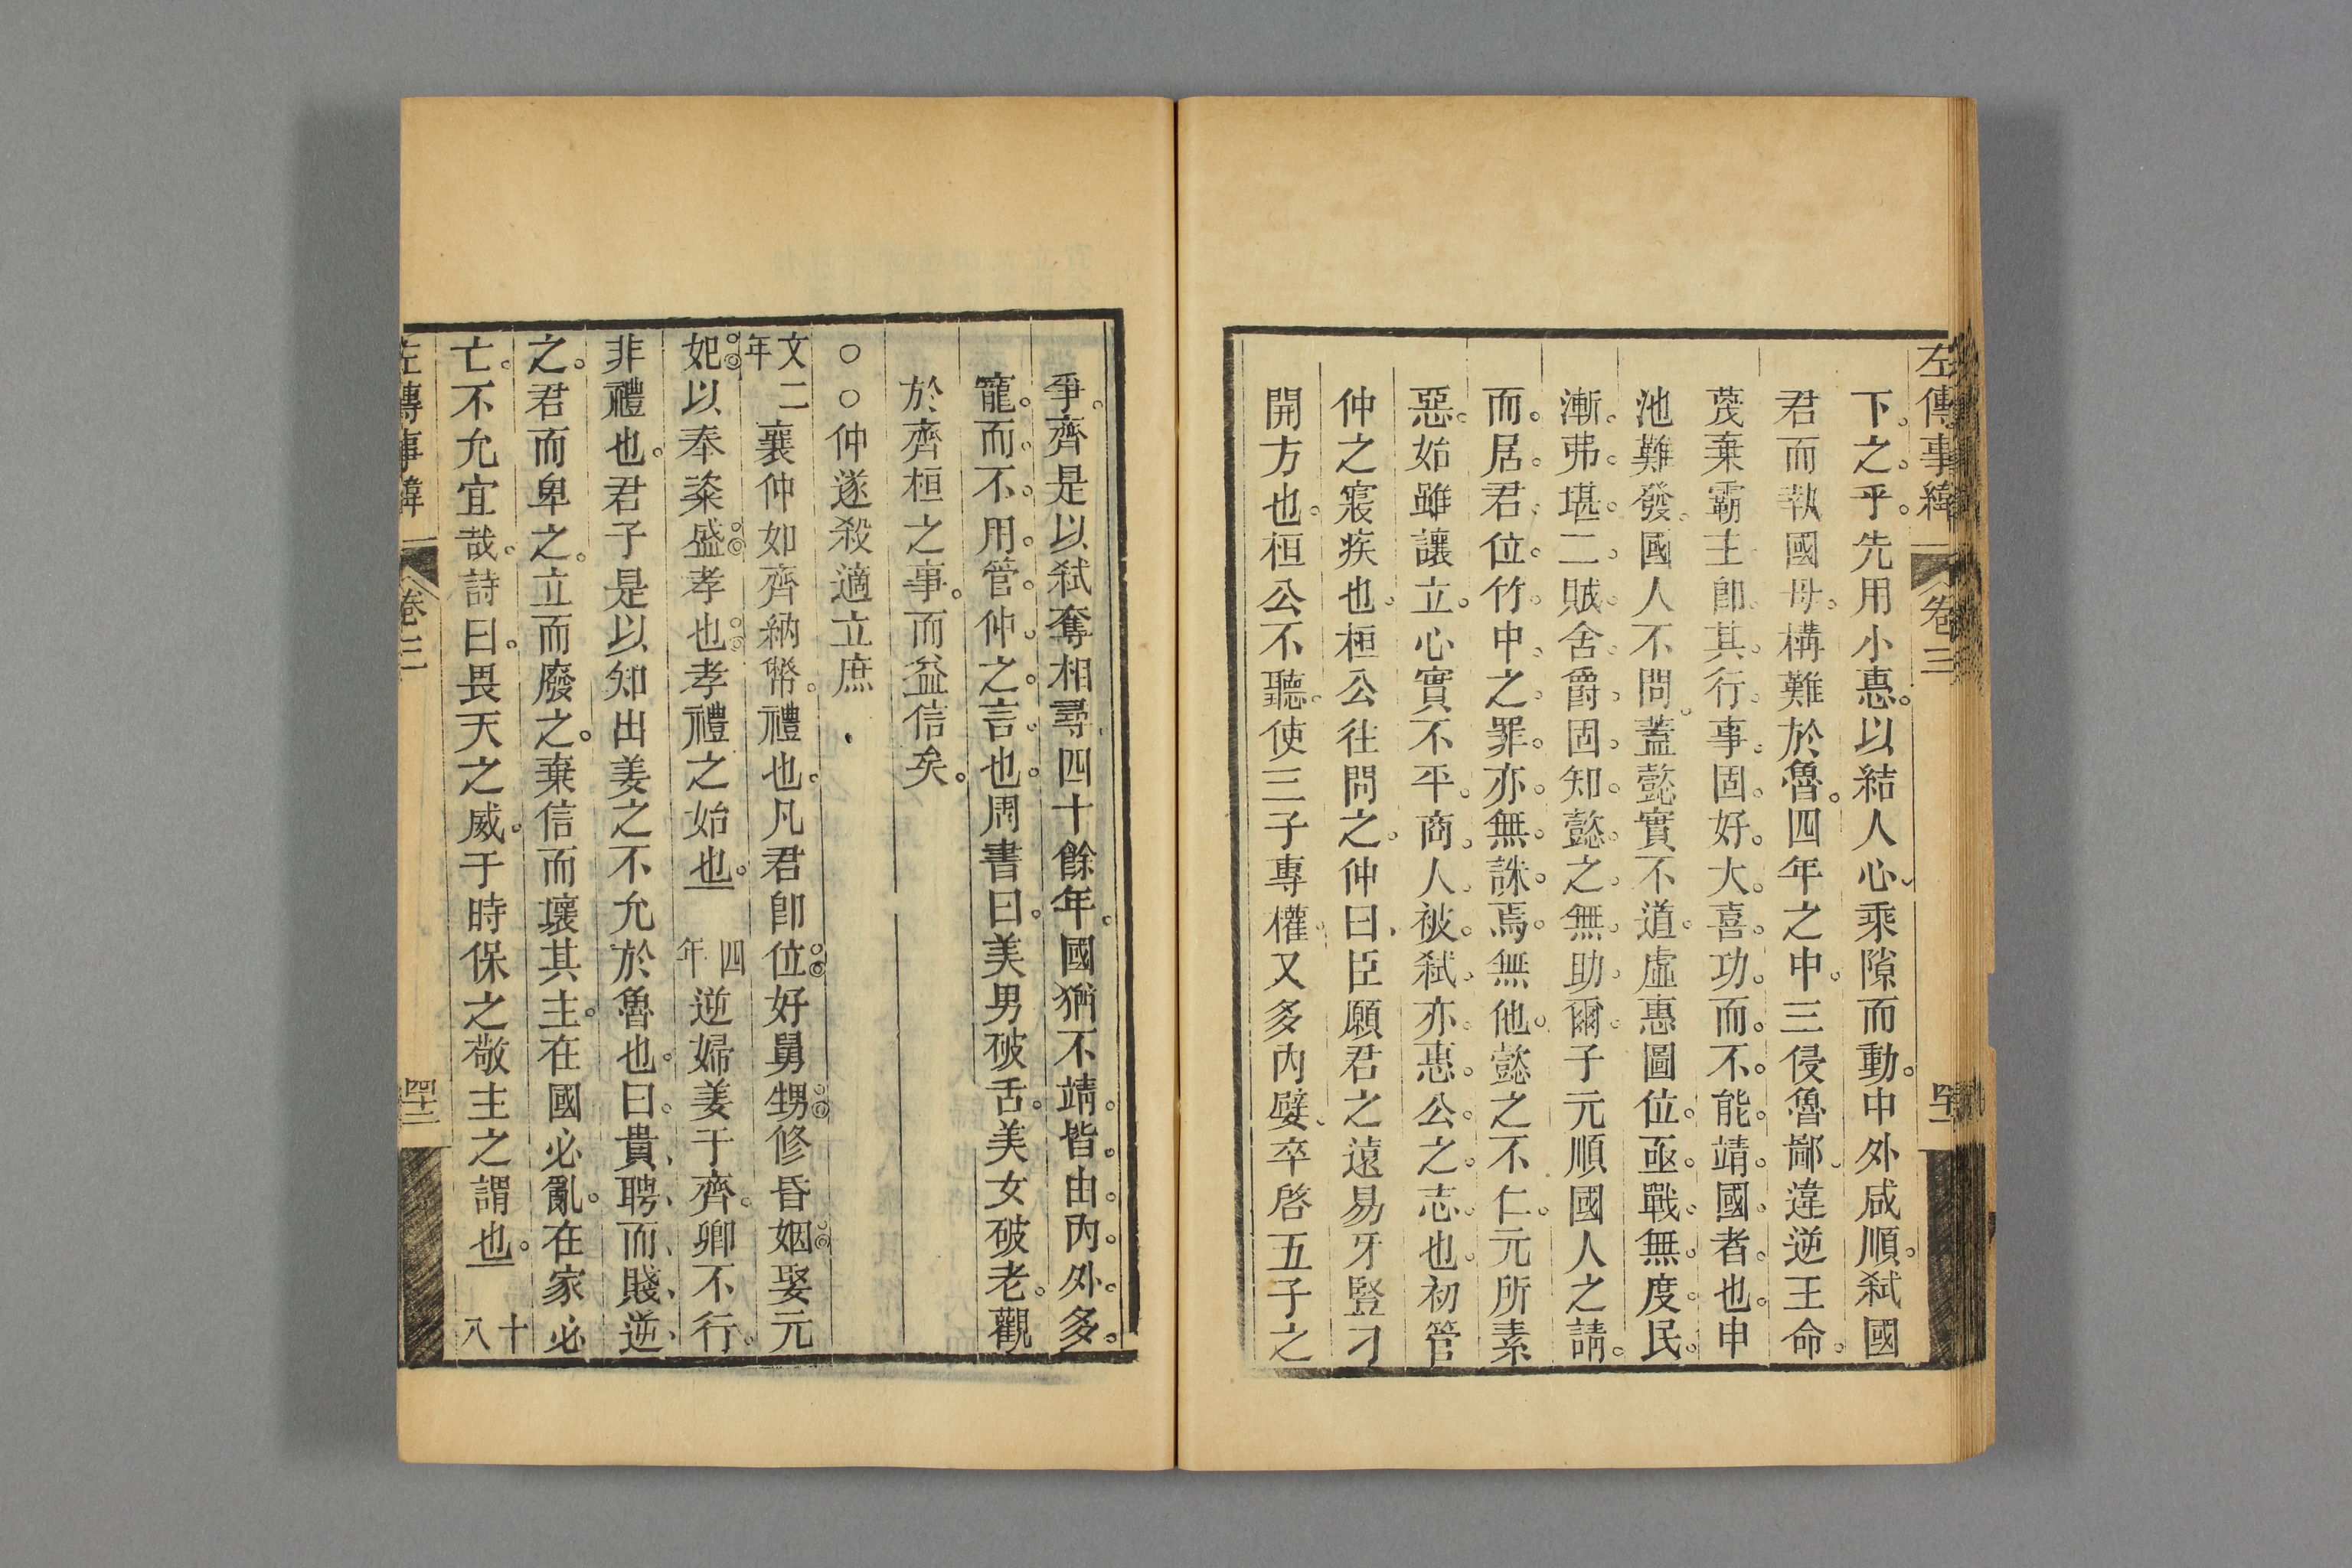 左傳事緯 卷三 四十一
下之乎先用小惠以結人心乘隙而動中外咸順弑國
君而執國母構難於魯四年之中三侵魯鄙違逆王命
茂棄霸主卽其行事固好大喜功而不能靖國者也申
池難發國人不問蓋懿實不道虛惠圖位亟戰無度民
漸弗堪二賊舍爵固知懿之無助爾子元順國人之請
而居君位竹中之罪亦無誅焉無他懿之不仁元所素
惡始雖讓立心實不平商人被弑亦惠公之志也初管
仲之寢疾也桓公往問之仲曰臣願君之遠易牙豎刁
開方也桓公不聽使三子專權又多內嬖卒啓五子之
爭齊是以弑奪相尋四十餘年國猶不靖皆由內外多
寵而不用管仲之言也周書曰美男破舌美女破老觀
於齊桓之事而益信矣
○○仲遂殺適立庶
文二年襄仲如齊納幣禮也凡君卽位好舅甥修昏姻娶元
妃以奉粢盛孝也孝禮之始也 四年逆婦姜于齊卿不行
非禮也君子是以知出姜之不允於魯也曰貴聘而賤逆
之君而卑之立而廢之棄信而壞其主在國必亂在家必
亡不允宜哉詩曰畏天之威于時保之敬主之謂也 十八
左傳事緯 卷三 四十二